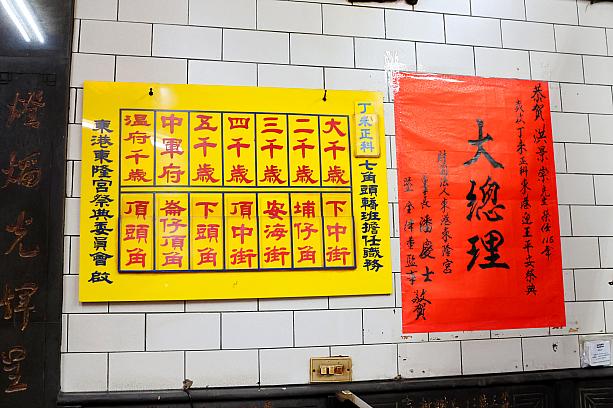 丁未正科
七角頭轎班擔任職務
大千歲
二千歲
三千歲
四千歲
五千歲
中軍府
溫府千歲
下中街
埔仔角
安海街
頂中街
下頭角
崙仔頂角
頂頭角
東港東隆宮祭典委員會啟
恭賀 洪景崇先生 榮任115年
歲次丁未正科東港迎王平安祭典
大總理
財團法人東港東隆宮
董事長 潘慶士
暨全體董監事 敬賀
燈燭光輝呈